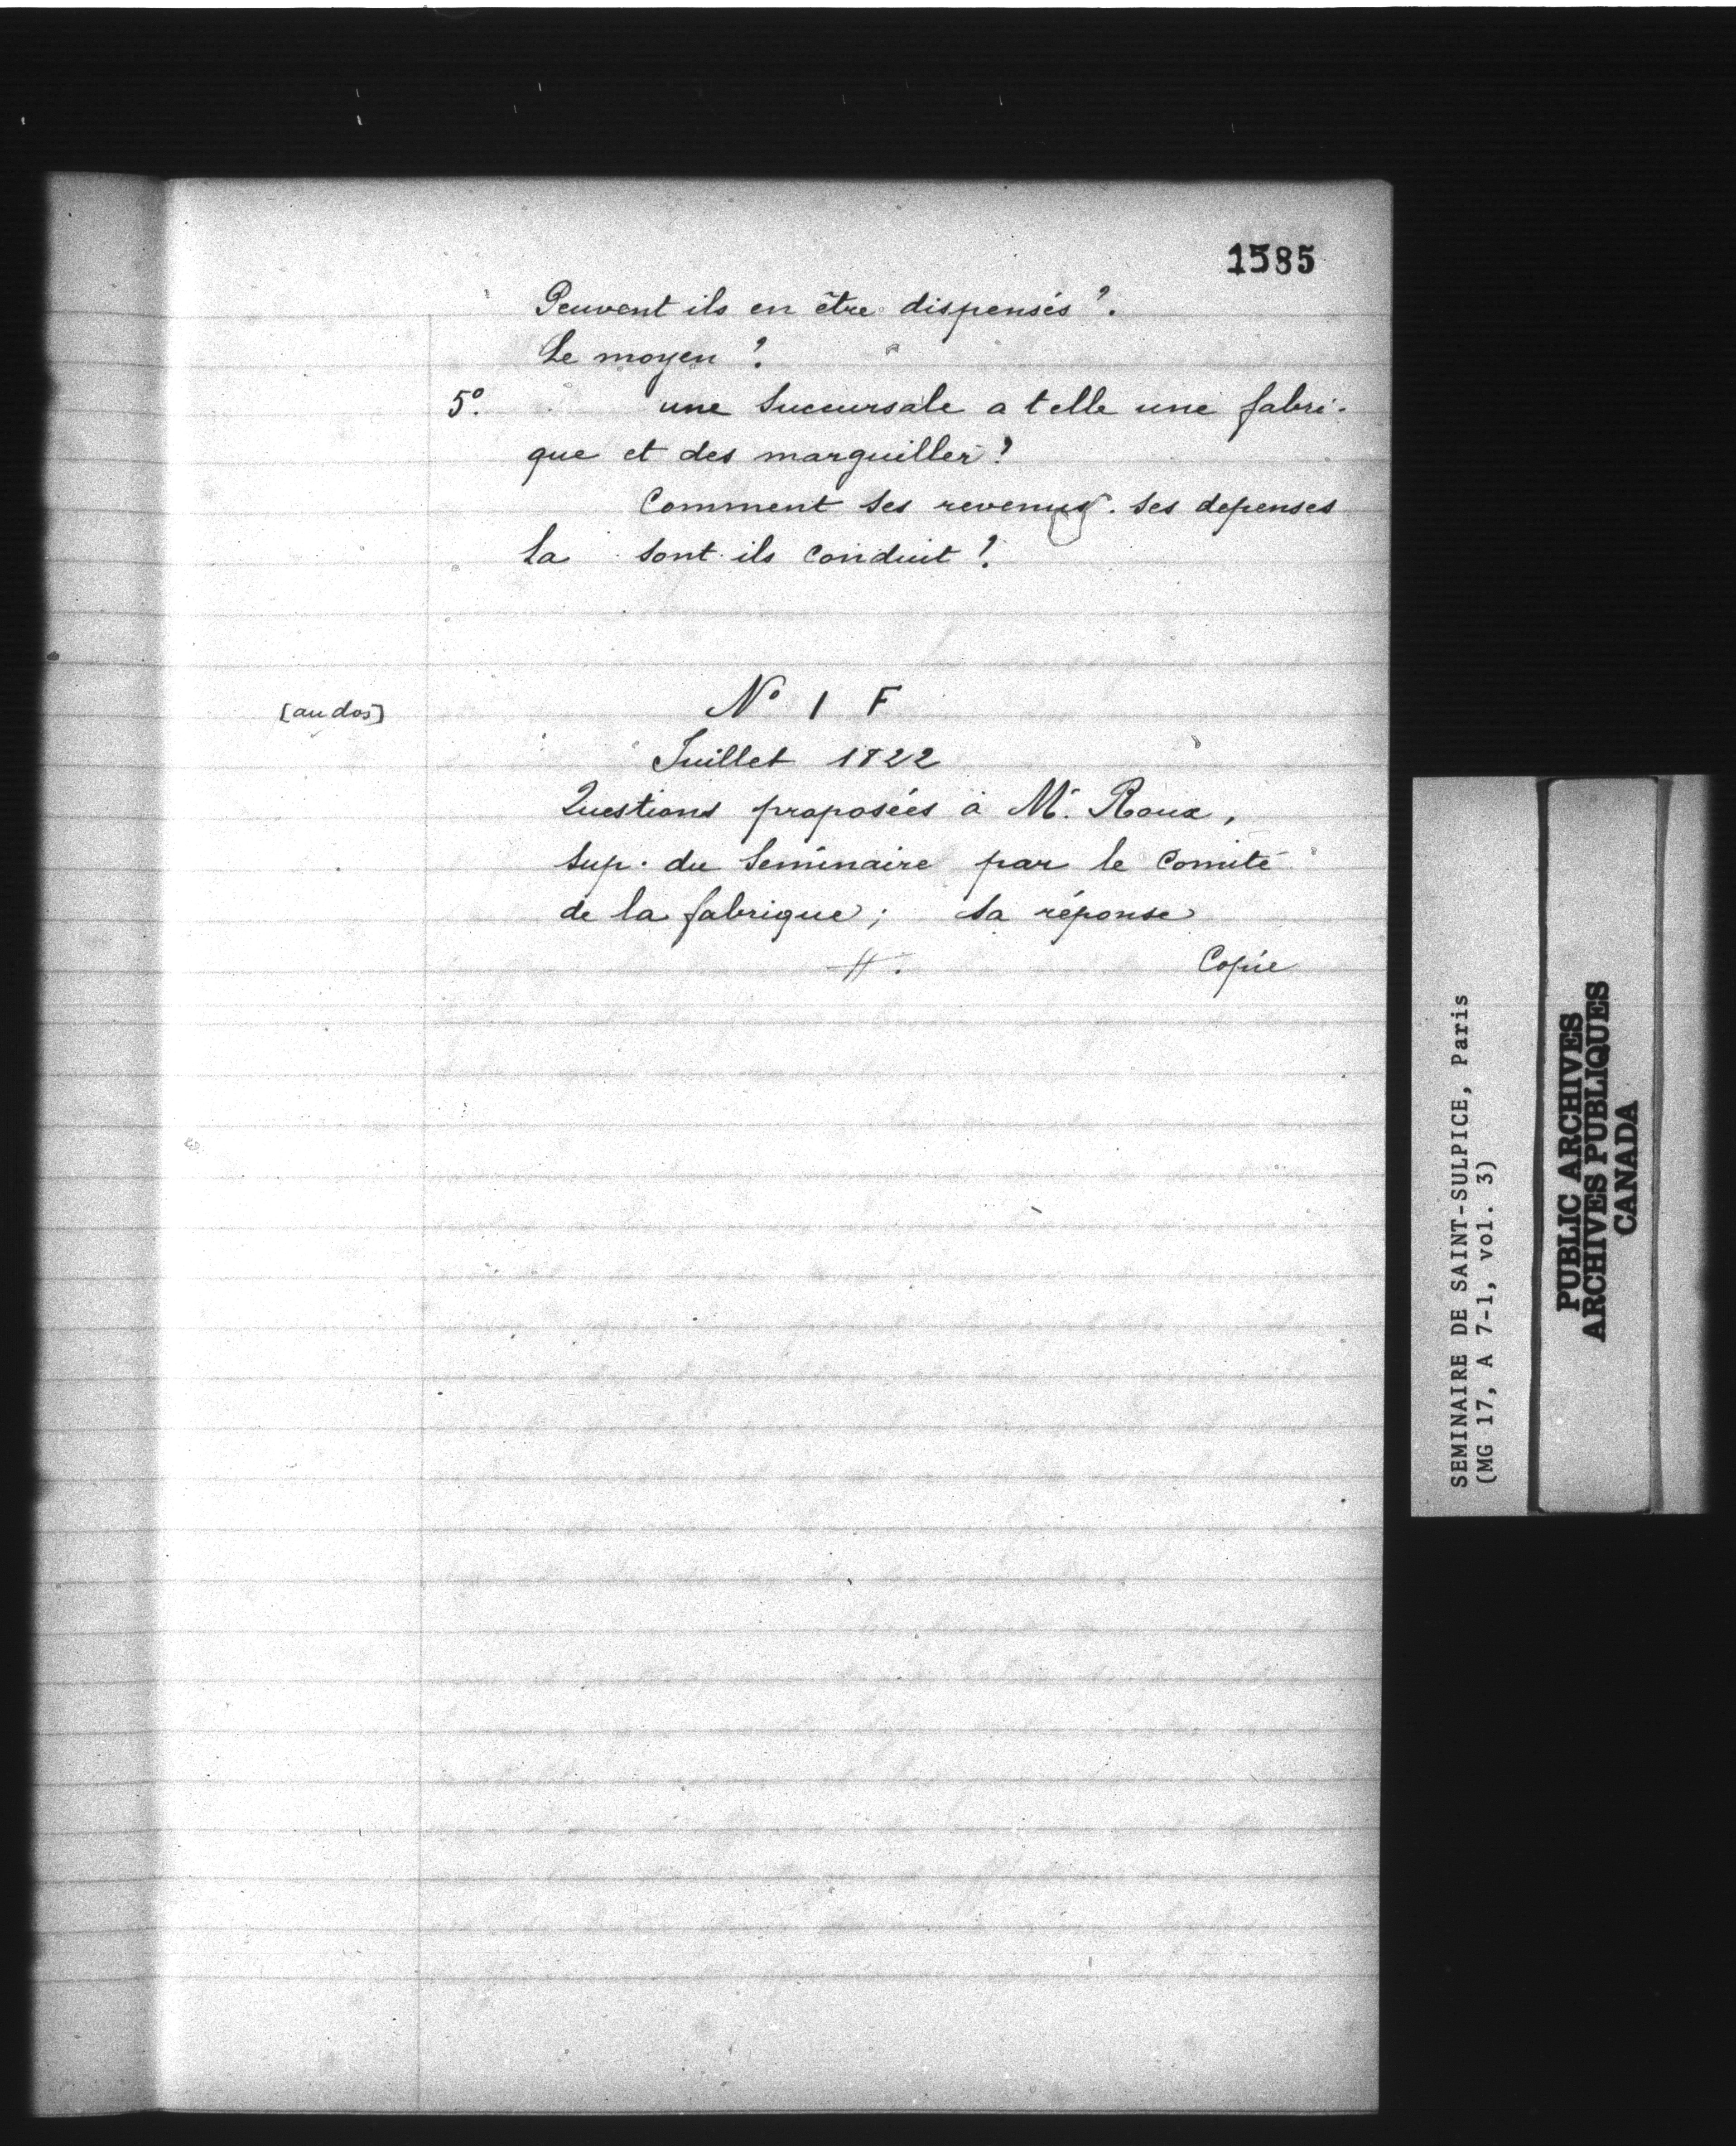 1585
Peuvent ils en être dispensés ?.
Le moyen ?
5º. une Succursale a telle une fabri-
que et des marguiller ?
Comment ses revenus. ses depenses
La sont ils conduit ?
[au dos]
Nº 1 F
Juillet 1822
Questions proposées à Mr. Roux,
Sup. du Seminaire par le Comité
de la fabrique ; sa réponse
Copie
SEMINAIRE DE SAINT-SULPICE, Paris
(MG 17, A 7-1, vol. 3)
PUBLIC ARCHIVES
ARCHIVES PUBLIQUES
CANADA